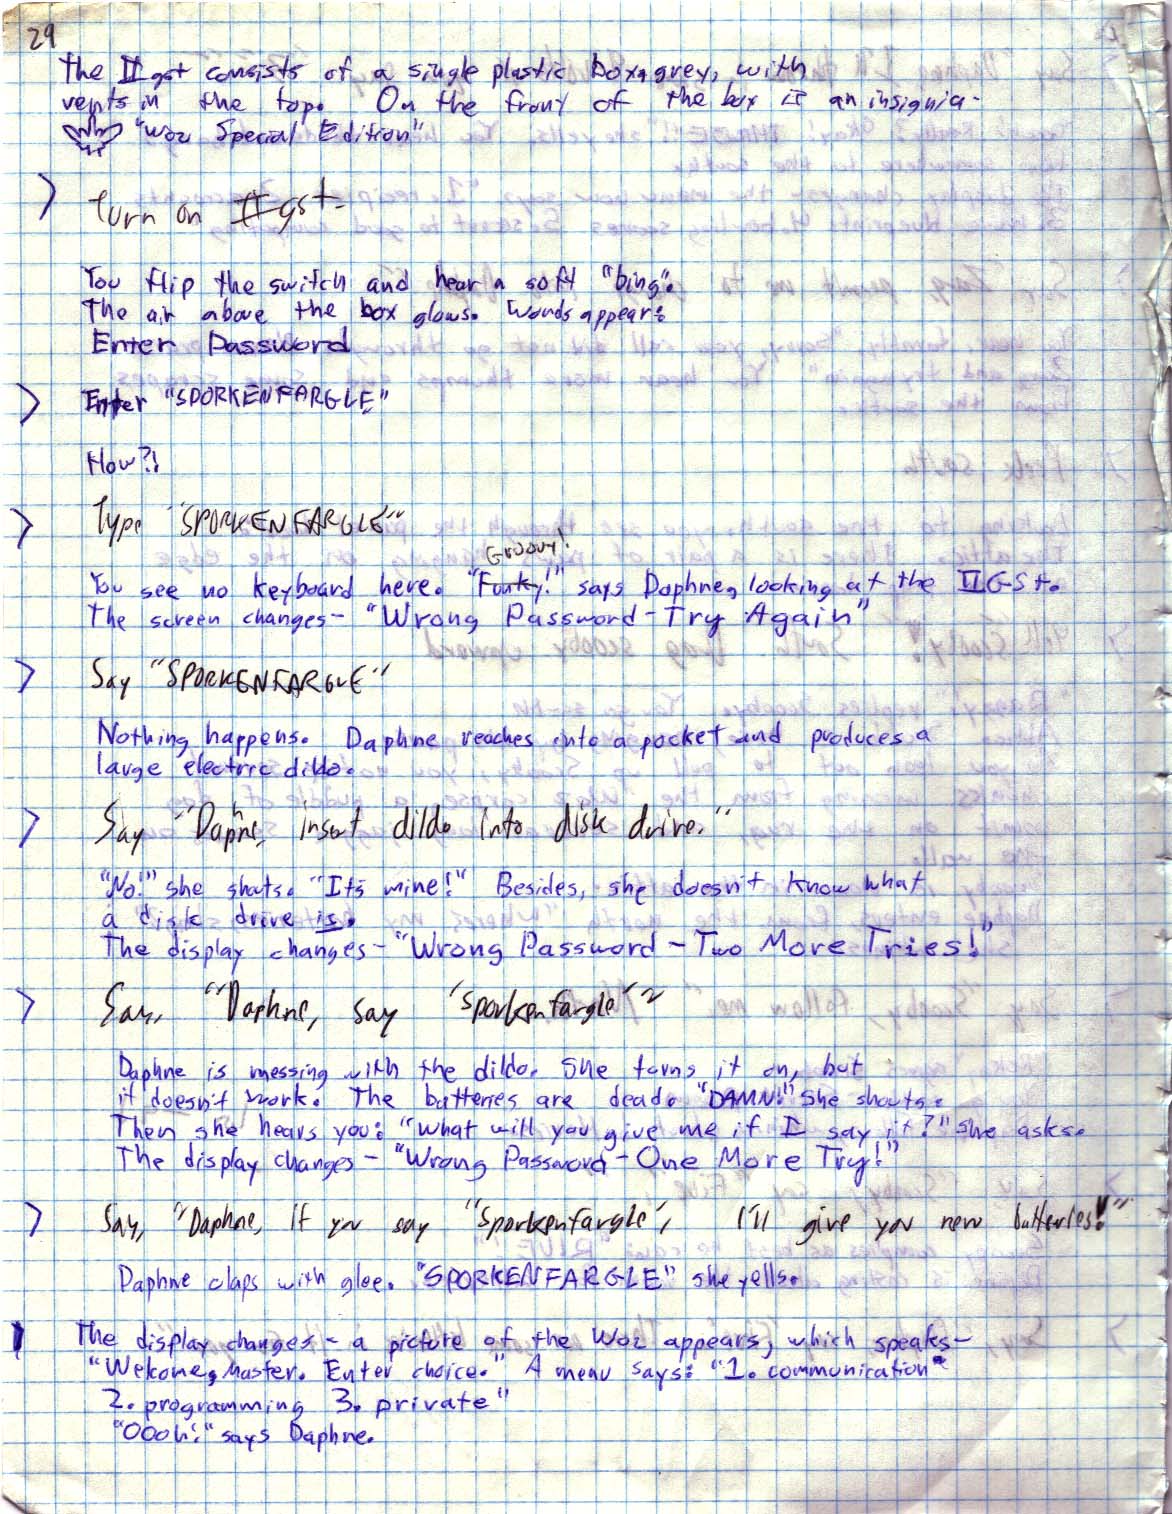 29
The IIgst consists of a single plastic box, grey, with
vents in the top. On the front of the box is an insignia-
"Woz Special Edition"
> Turn on IIgst.
You flip the switch and hear a soft "bing".
The air above the box glows. Words appear:
Enter Password
> Enter "SPORKENFARGLE"
How?!
> Type "SPORKENFARGLE"
Groovy!
You see no keyboard here. "Funky!" says Daphne, looking at the IIGSt.
The screen changes- "Wrong Password-Try Again"
> Say "SPORKENFARGLE"
Nothing happens. Daphne reaches into a pocket and produces a
large electric dildo.
> Say "Daphne, insert dildo into disk drive."
"No!" she shouts. "It's mine!" Besides, she doesn't know what
a disk drive is.
The display changes-"Wrong Password-Two More Tries!"
> Say, "Daphne, say 'Sporkenfargle'"
Daphne is messing with the dildo. She turns it on, but
it doesn't work. The batteries are dead. "DAMN!" She shouts.
Then she hears you: "What will you give me if I say it?" she asks.
The display changes- "Wrong Password-One More Try!"
> Say, "Daphne, if you say "Sporkenfargle", I'll give you new batteries!"
Daphne claps with glee. "SPORKENFARGLE" she yells.
The display changes- a picture of the Woz appears, which speaks-
"Welcome, Master. Enter choice." A menu says: "1. communication
2. programming 3. private"
"Oooh!" says Daphne.